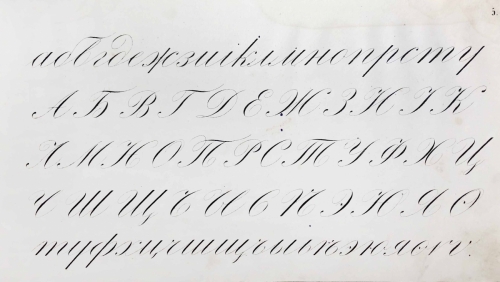 5.
абвгдежзиіклмнопрсту
А Б В Г Д Е Ж З И І К
Л М Н О П Р С Т У Ф Х Ц
Ч Ш Щ Ъ Ы Ь Ѣ Э Ю Я Ѳ
туфхцчшщъыьѣэюя